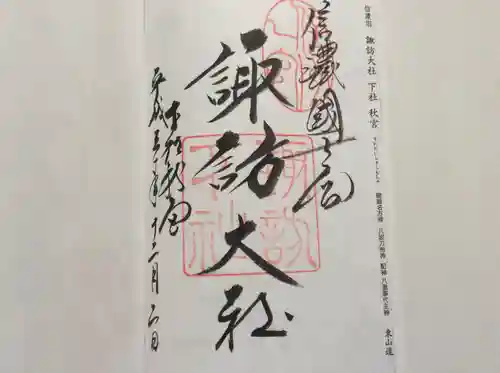 信濃国 諏訪大社 下社 秋宮
健御名方神 八坂刀売神 配祀 八重事代主神
東山道
信濃國一之宮
諏訪大社
下社秋宮
諏訪
下社
十二月六日